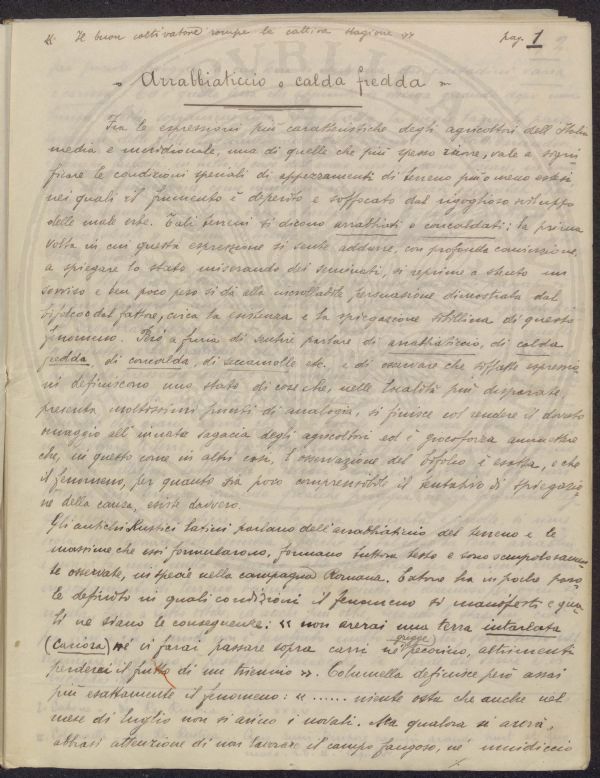 " Il buon coltivatore rompe la cattiva stagione "
Pag. 1
" Arrabbiaticcio o calda fredda "
Fra le espressioni più caratteristiche degli agricoltori dell'Italia
media e meridionale, una di quelle che più spesso ricorre, vale a signi
ficare le condizioni speciali di appezzamenti di terreno più o meno estesi
nei quali il frumento è disperito e soffocato dal rigoglioso sviluppo
delle male erbe. Tali terreni si dicono arrabbiati o concotdati; la prima
volta in cui questa espressione si sente addurre, con profonda convinzione,
a spiegare lo stato miserando dei seminati, si reprime a stento un
sorriso e ben poco peso si dà alla incrollabile persuasione dimostrata dal
bifolco e dal fattore, circa la esistenza e la spiegazione sibillina di questo
fenomeno. Però a furia di sentire parlare di arrabbiaticcio, di calda
fredda, di concalda, di etc. e di osservare che siffatte espressio
ni definiscono uno stato di cose che, nelle località più disparate,
presenta moltissimi punti di analogia, si finisce col rendere il dovuto
omaggio all'innata sagacia degli agricoltori ed è giocoforza ammettere
che, in questo come in altri casi, l'osservazione del bifolco è esatta, e che
il fenomeno, per quanto sia poco comprensibile il tentativo di spiegazio
ne della causa, esiste davvero.
Gli antichi Rustici latini parlano dell'arrabbiaticcio del terreno e le
massime che essi formularono, formano tuttora testo e sono scrupolosamen
te osservate, in specie nella campagna Romana. Catone ha in poche paro
le definito in quali condizioni il fenomeno si manifesti e qua
li ne siano le conseguenze: « non arerai una terra intarlata
(cariosa) nè vi farai passare sopra carri nè gregge pecorino, altrimenti
perderai il frutto di un triennio ». Columella definisce però assai
più esattamente il fenomeno: « ...... niente osta che anche nel
mese di luglio non si arino i novali. Ma qualora si arerà,
abbiasi attenzione di non lavorare il campo fangoso, nè umidiccio